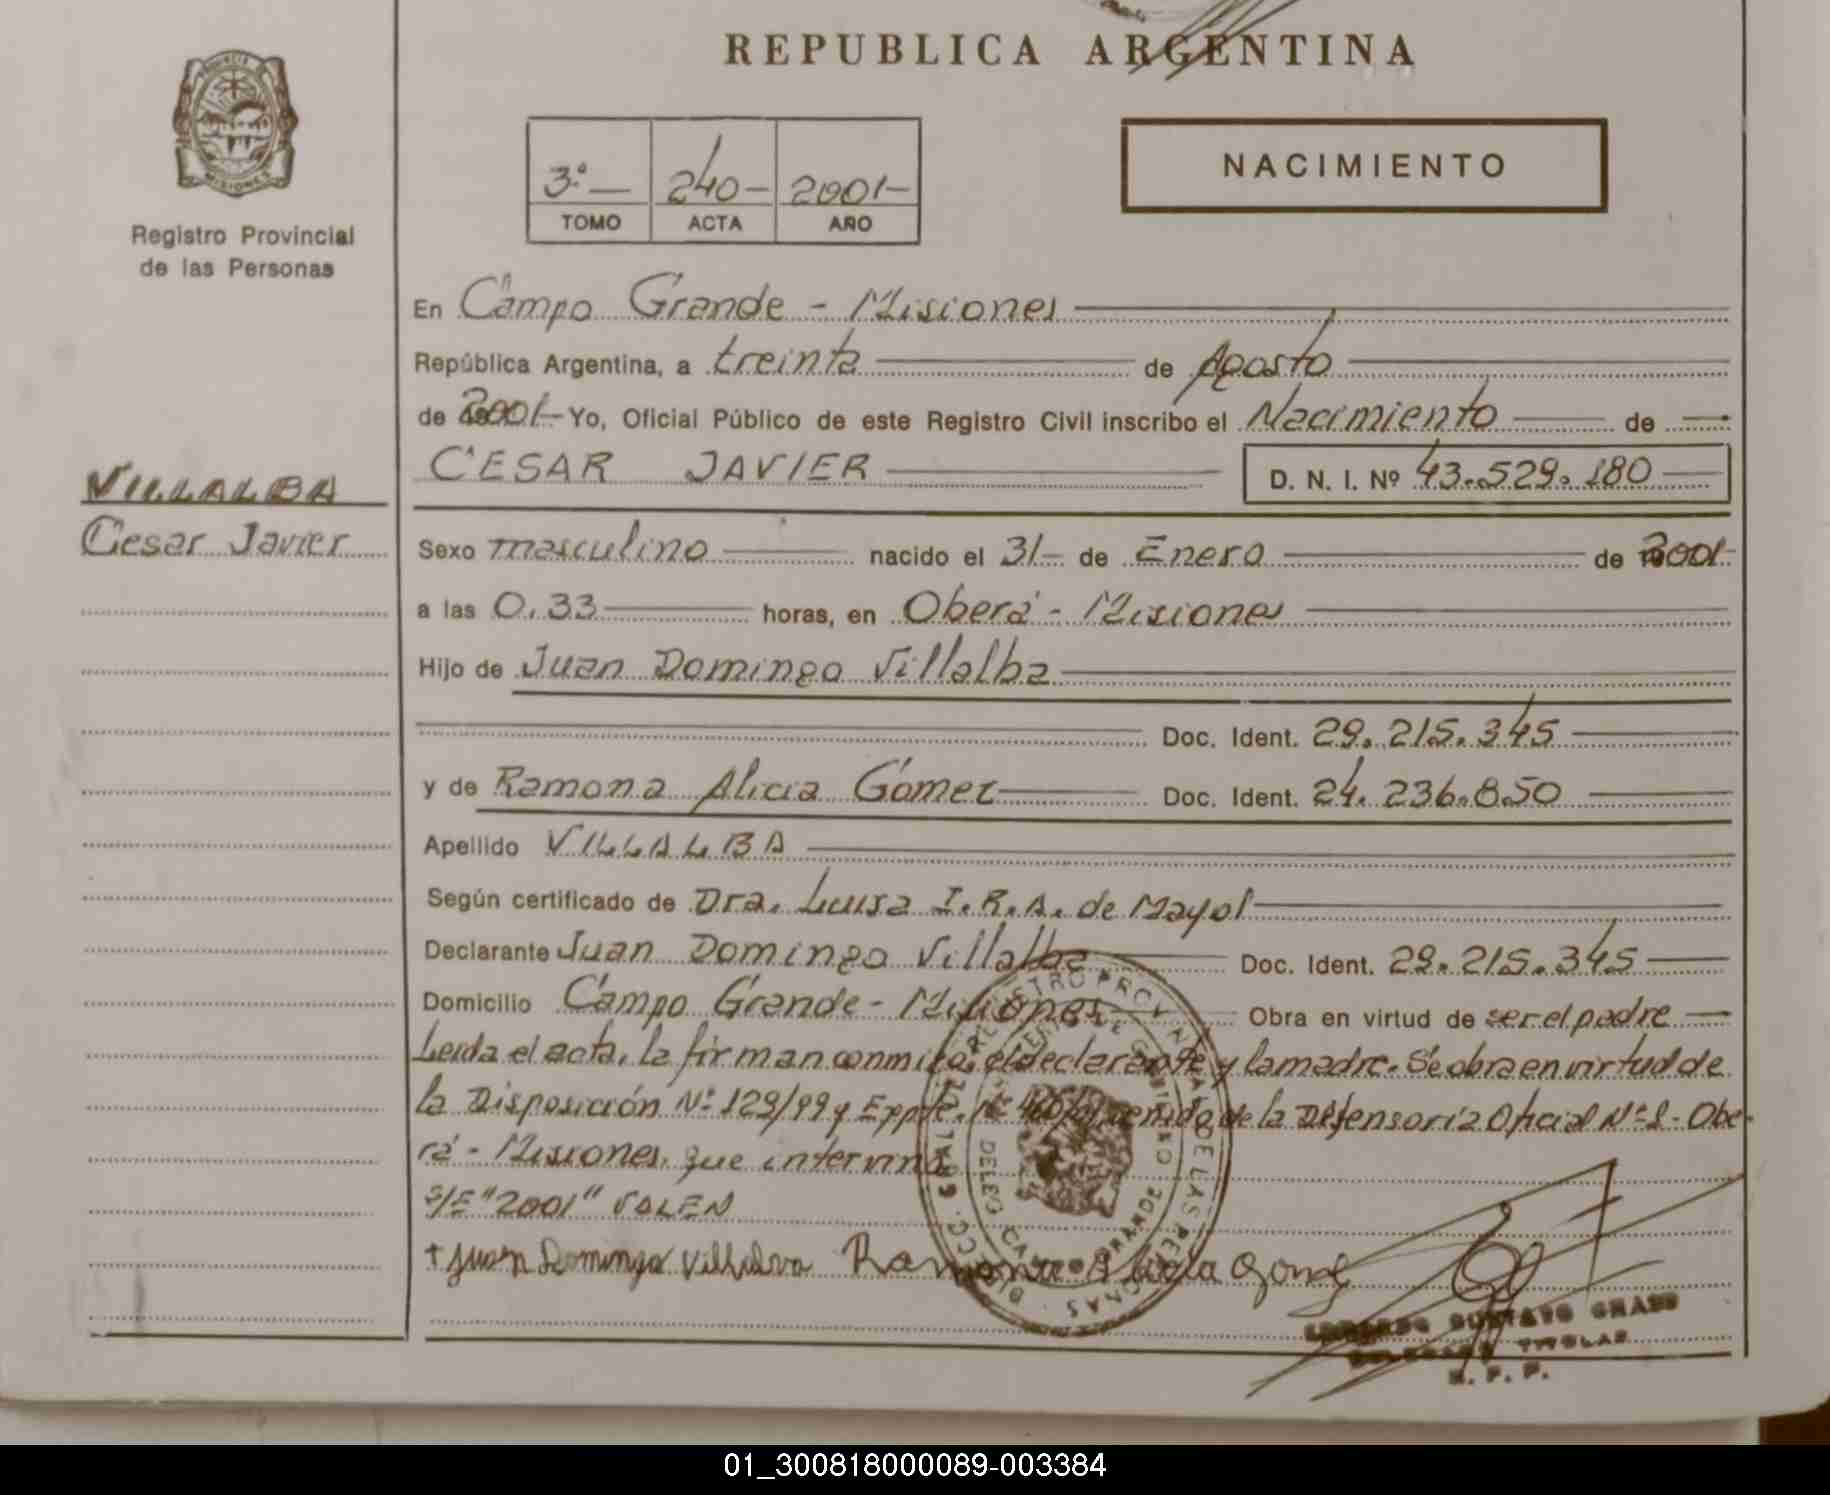 REPUBLICA ARGENTINA
PROVINCIA DE
MISIONES
Registro Provincial
de las Personas
3º — 240 — 2001 —
TOMO ACTA AÑO
NACIMIENTO
En Campo Grande - Misiones
República Argentina, a treinta de Agosto
de 2001 — Yo, Oficial Público de este Registro Civil inscribo el Nacimiento de
CESAR JAVIER D. N. I. Nº 43.529.180
VILLALBA
Cesar Javier
Sexo masculino nacido el 31 — de Enero de 2001 -
a las 0.33 horas, en Oberá - Misiones
Hijo de Juan Domingo Villalba
Doc. Ident. 29.215.345
y de Ramona Alicia Gómez Doc. Ident. 24.236.850
Apellido VILLALBA
Según certificado de Dra. Luisa I.R.A. de Mayol
Declarante Juan Domingo Villalba Doc. Ident. 29.215.345
Domicilio Campo Grande - Misiones Obra en virtud de ser el padre
Leída el acta, la firman conmigo, el declarante y la madre. Se obra en virtud de
la Disposición Nº 129/99 y Expte. de la Defensoría Oficial Nº 1 - Obe-
rá - Misiones, que intervino
S/E "2001" VALEN
+ Juan Dominga Villalva Ramona Alicia Gomez
REGISTRO PROVINCIAL DE LAS PERSONAS
DELEG CAMPO GRANDE
GUSTAVO
TITULAR
R. P. P.
01_300818000089-003384